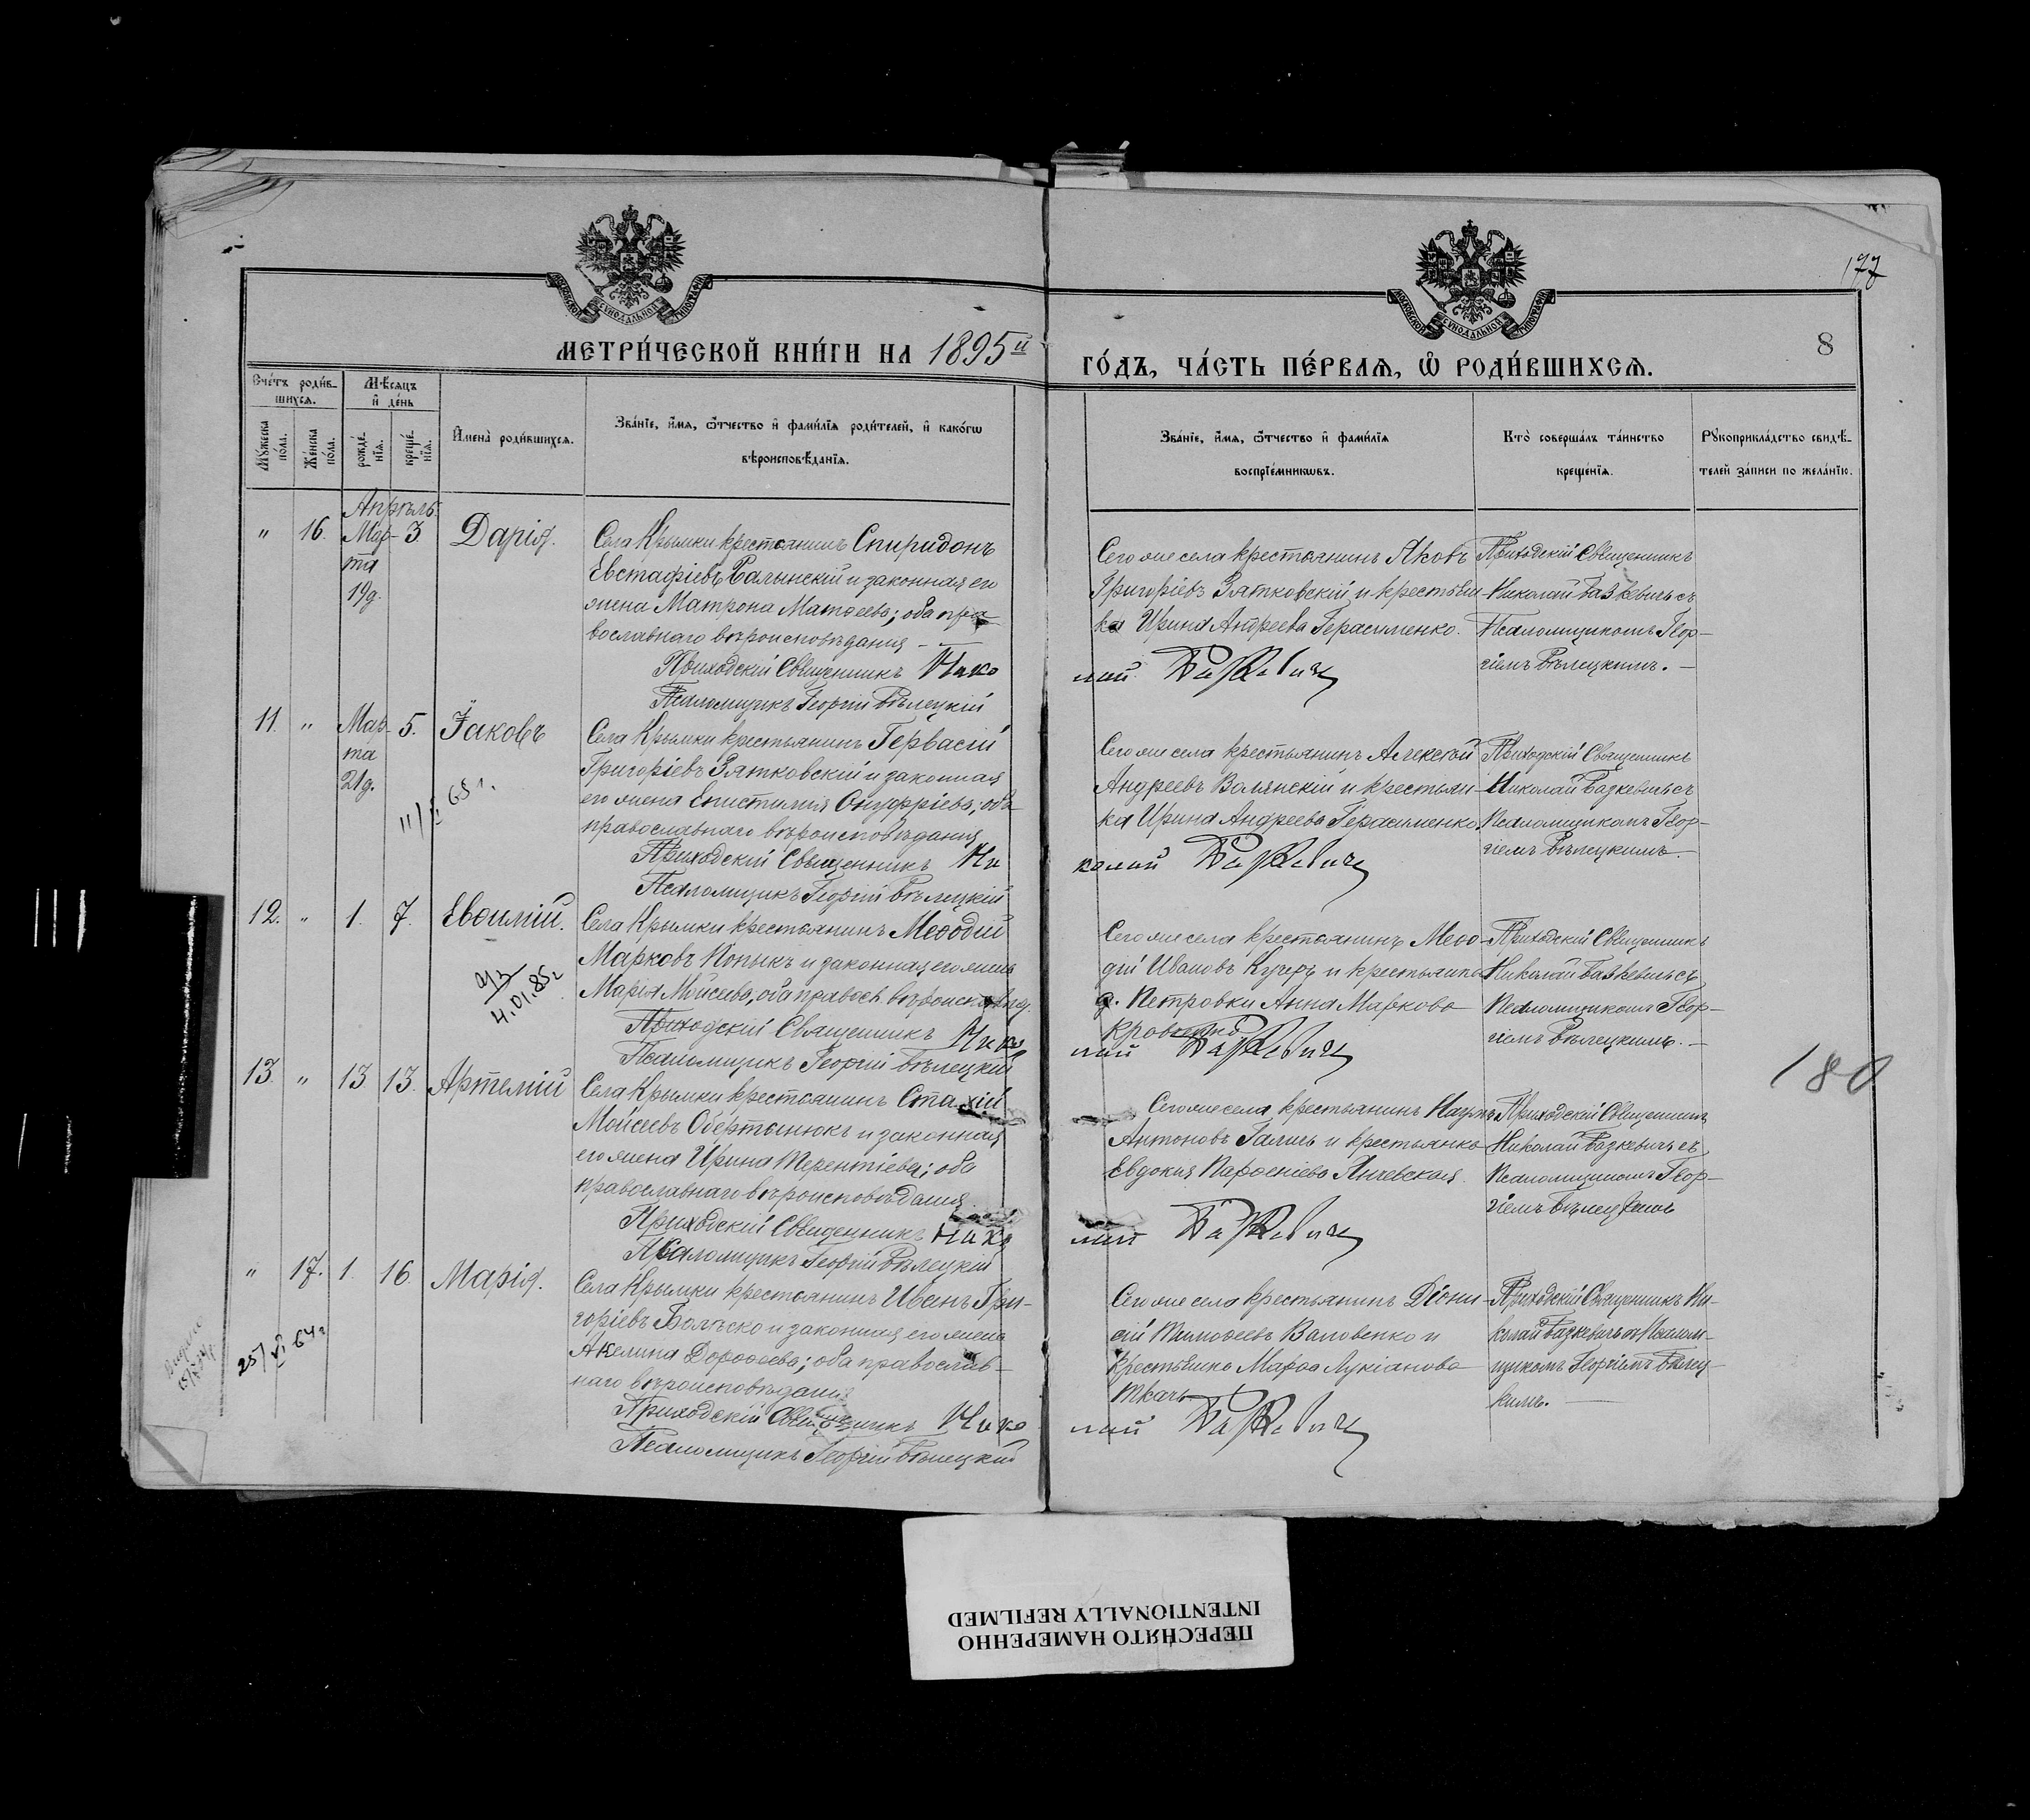 177
МОСКОВСКОЙ СѴНОДАЛЬНОЙ ТИПОГРАФІИ
МОСКОВСКОЙ СѴНОДАЛЬНОЙ ТИПОГРАФІИ
МЕТРИ́ЧЕСКОЙ КНИ́ГИ НА 1895й
ГО́ДЪ, ЧА́СТЬ ПЕ́РВАѦ, Ѡ҆ РОДИ́ВШИХСѦ.
8
Сче́тъ роди́в-
шихсѧ.
Мѣ́сѧцъ
и҆ де́нь
Мꙋ́жеска по́ла.
Же́нска по́ла.
рожде́-
нїѧ.
креще́-
нїѧ.
И҆мена̀ роди́вшихсѧ.
Зва́нїе, и҆́мѧ, ѻ҆́тчество и҆ фами́лїѧ роди́телей, и҆ како́гѡ
вѣроисповѣ́данїѧ.
Зва́нїе, и҆́мѧ, ѻ҆́тчество и҆ фами́лїѧ
воспрїе́мникѡвъ.
Кто̀ соверша́лъ та́инство
креще́нїѧ.
Рꙋкоприкла́дство свидѣ́-
телей за́писи по жела́нїю.
Апрѣль
" 16. Мар- 3. Дарія.
та
19д.
Села Крымки крестьянинъ Спиридонъ
Евстафіевъ Валынскій и законная его
жена Матрона Матѳеева; оба пра-
вославнаго вѣроисповѣданія —
Приходскій Священникъ Нико
Псаломщикъ Георгій Бѣлецкій
Сего же села крестьянинъ Яковъ
Григоріевъ Зятковскій и крестьян-
ка Ирина Андреева Герасименко.
лай
Приходскій Священникъ
Николай Базкевичъ съ
Псаломщикомъ Геор-
гіемъ Бѣлецкимъ. —
11. " Мар- 5. Іаковъ
та
21д.
11/II 65 г.
Села Крымки крестьянинъ Гервасій
Григоріевъ Зятковскій и законная
его жена Епистимія Онуфріева; оба
православнаго вѣроисповѣданія
Приходскій Священникъ Ни
Псаломщикъ Георгій Бѣлецкій
Сего же села крестьянинъ Алексѣй
Андреевъ Волянскій и крестьян-
ка Ирина Андреева Герасименко
колай
Приходскій Священникъ
Николай Базкевичъ съ
Псаломщикомъ Геор-
гіемъ Бѣлецкимъ.
12. " 1. 7. Евѳимій.
4.01.85г
Села Крымки крестьянинъ Меѳодій
Марковъ Копыкъ и законная его жена
Марія Мойсеева, оба правосл. вѣроисповѣд.
Приходскій Священникъ Нико
Псаломщикъ Георгій Бѣлецкій
Сего же села крестьянинъ Меѳо-
дій Ивановъ Кучеръ и крестьянка
д. Петровки Анна Маркова
Кравченко
лай
Приходскій Священникъ
Николай Базкевичъ съ
Псаломщикомъ Геор-
гіемъ Бѣлецкимъ. —
180
13. " 13 13. Артемій
Села Крымки крестьянинъ Стахій
Мойсеевъ Обертынюкъ и законная
его жена Ирина Терентіева; оба
православнаго вѣроисповѣданія
Приходскій Священникъ Нико
Псаломщикъ Георгій Бѣлецкій
Сего же села крестьянинъ Наумъ
Антоновъ Галичъ и крестьянка
Евдокія Парѳеніева Янчевская.
лай
Приходскій Священникъ
Николай Базкевичъ съ
Псаломщикомъ Геор-
гіемъ Бѣлецкимъ
" 17. 1. 16. Марія.
25/VI 64г
Села Крымки крестьянинъ Иванъ Гри-
горіевъ и законная его жена
Акелина Дороѳеева; оба православ-
наго вѣроисповѣданія
Приходскій Священникъ Нико
Псаломщикъ Георгій Бѣлецкій
Сего же села крестьянинъ Діони-
сій Тимоѳеевъ Валовенко и
крестьянка Марѳа Лукіанова
Ткачъ
лай
Приходскій Священникъ Ни-
колай Базкевичъ съ Псалом-
щикомъ Георгіемъ Бѣлец-
кимъ. —
ПЕРЕСНЯТО НАМЕРЕННО
INTENTIONALLY REFILMED